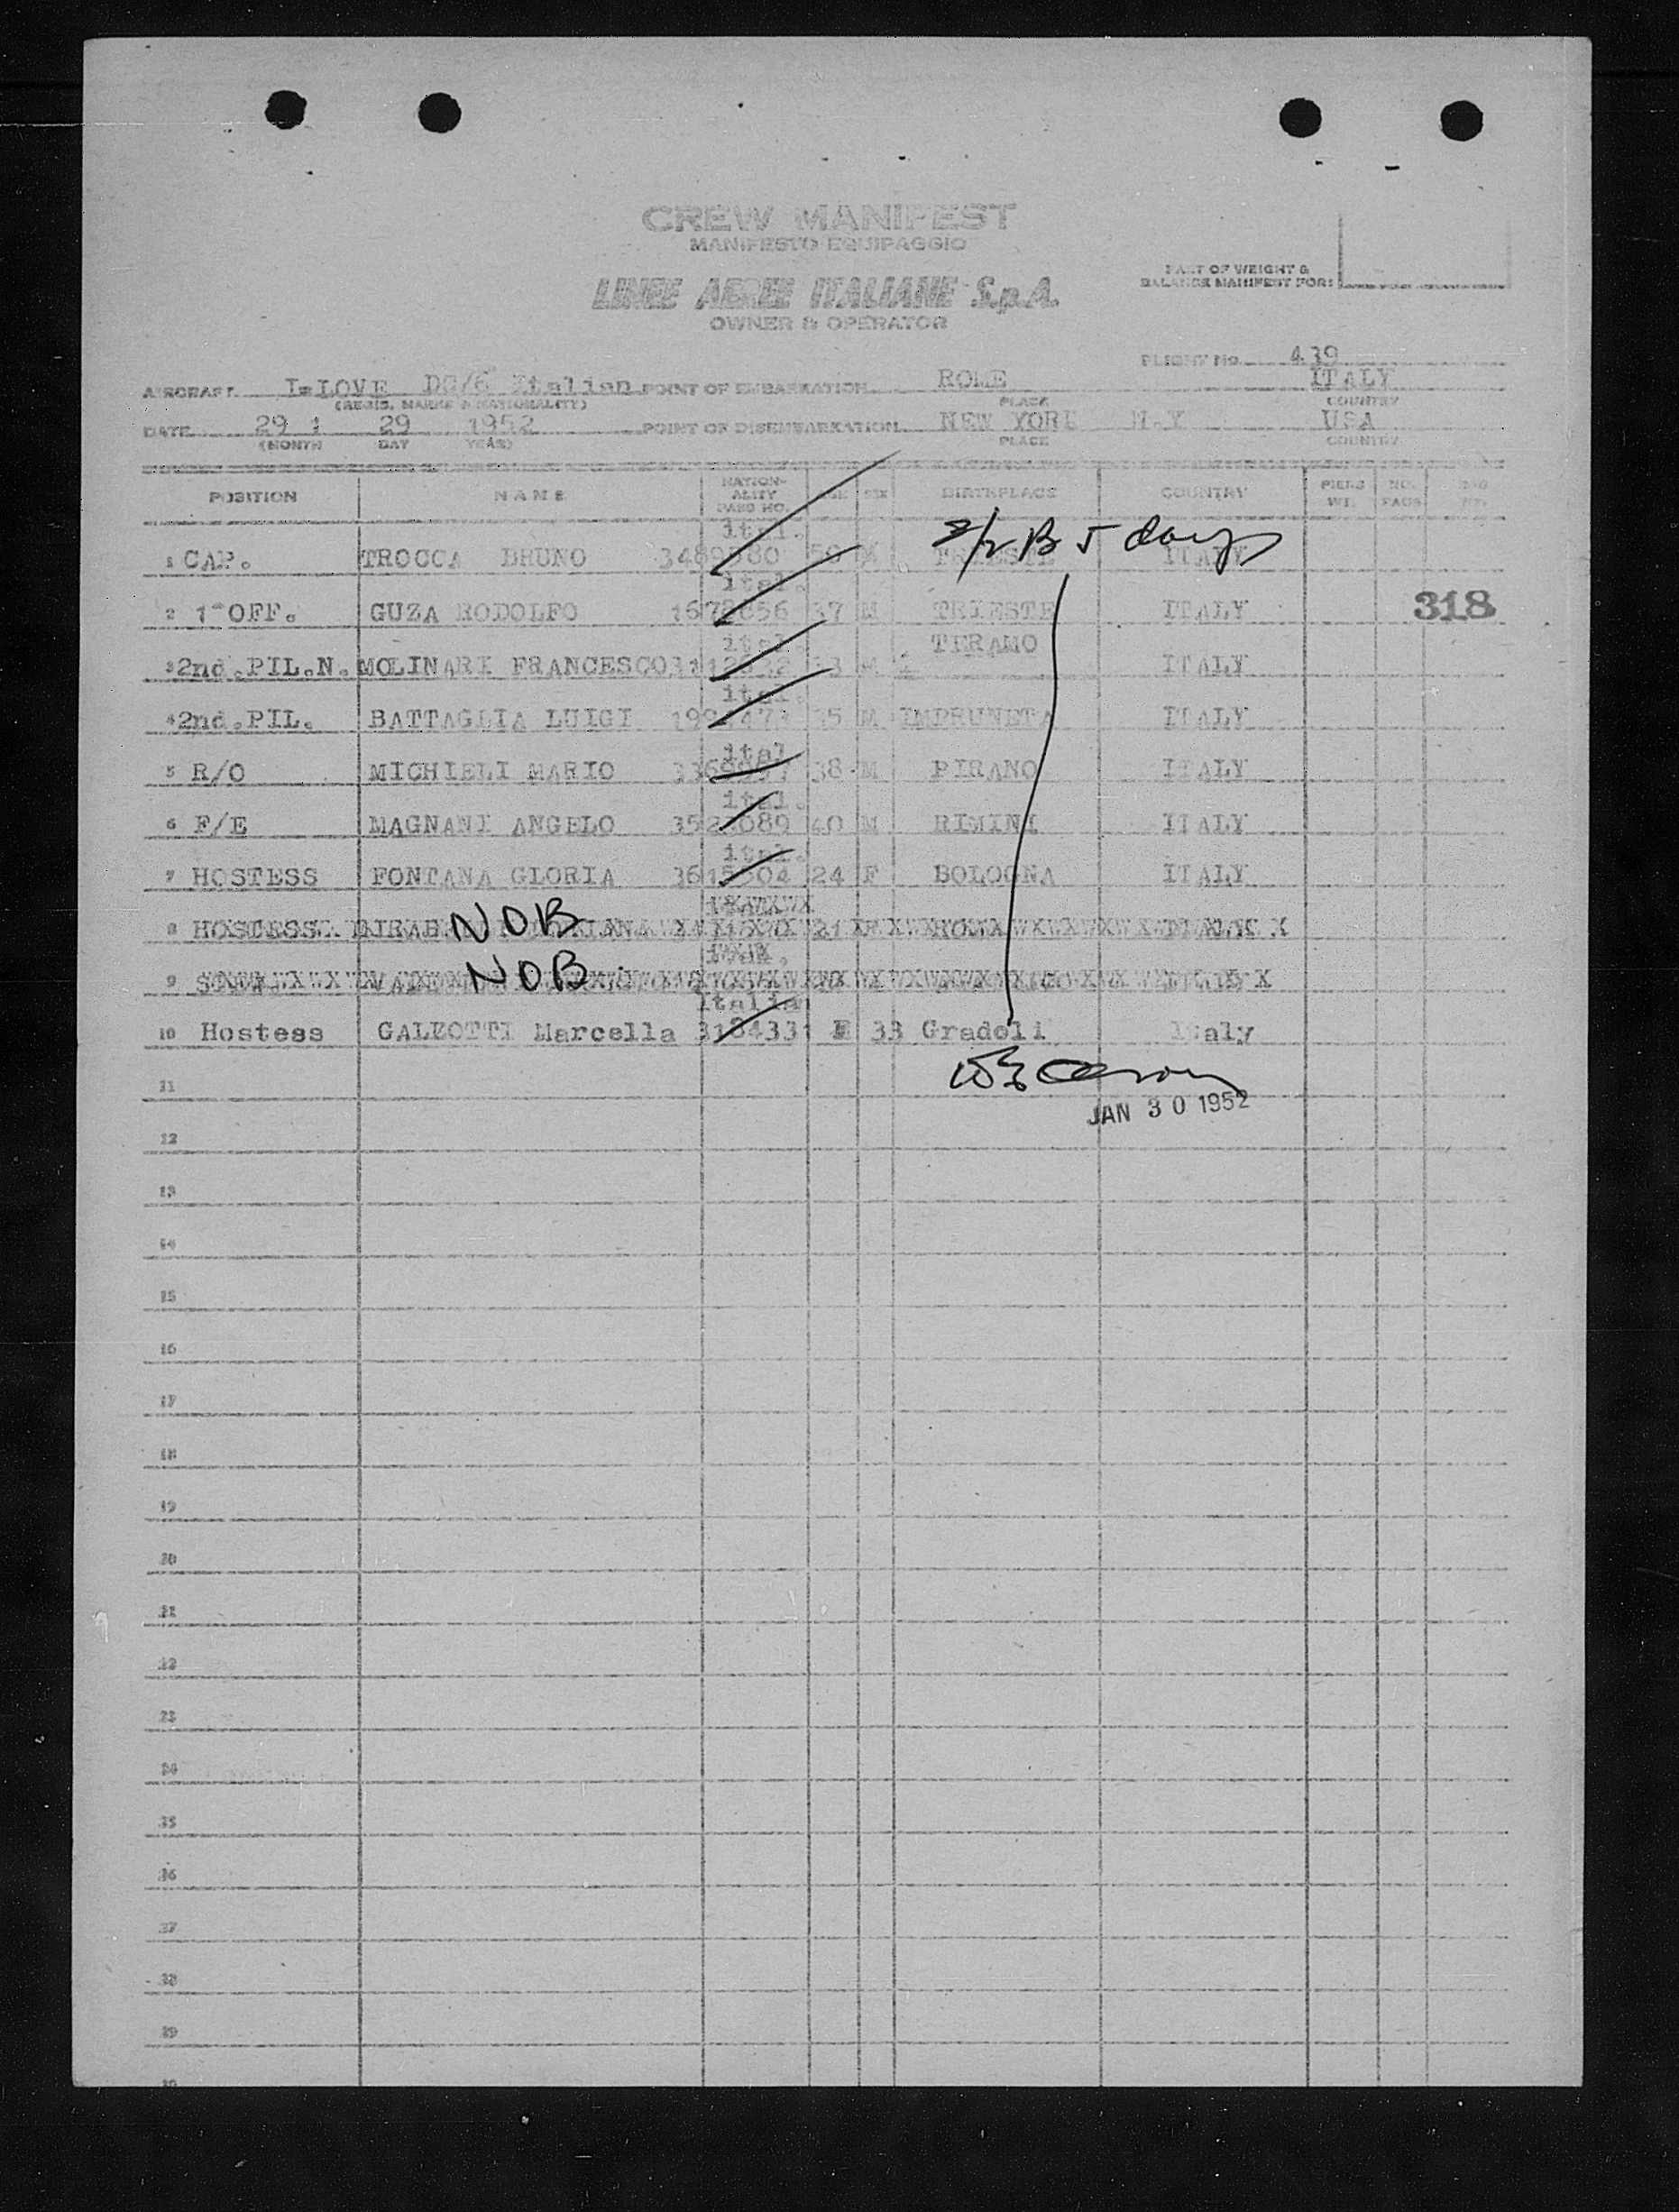 CREW MANIFEST
MANIFESTO EQUIPAGGIO
LINEE AEREE ITALIANE S.p.A.
OWNER & OPERATOR
PART OF WEIGHT &
BALANCE MANIFEST FOR:
FLIGHT No. 439
AIRCRAFT I-LOVE DC/6 Italian POINT OF EMBARKATION ROME ITALY
(REGIS. MARKS & NATIONALITY) PLACE COUNTRY
DATE 29 1 29 1952 POINT OF DISEMBARKATION NEW YORK N.Y USA
(MONTH DAY YEAR) PLACE COUNTRY
POSITION NAME NATION-ALITY PASS NO. AGE SEX BIRTHPLACE COUNTRY
2/2 B 5 days
ital.
1 CAP. TROCCA BRUNO M TRIESTE ITALY
ital.
2 1^ OFF. GUZA RODOLFO 37 M TRIESTE ITALY 318
ital. TERAMO
3 2nd.PIL.N. MOLINARI FRANCESCO 33 M ITALY
ital.
4 2nd.PIL. BATTAGLIA LUIGI 35 M IMPRUNETA ITALY
ital
5 R/O MICHIELI MARIO 38 M PIRANO ITALY
ital.
6 F/E MAGNANI ANGELO 40 M RIMINI ITALY
ital.
7 HOSTESS FONTANA GLORIA 24 F BOLOGNA ITALY
8 HOSTESS NOB 21
9 NOB
Italia
10 Hostess GALEOTTI Marcella 3184331 F 33 Gradoli Italy
11
JAN 30 1952
12
13
14
15
16
17
18
19
20
21
22
23
24
25
26
27
28
29
30